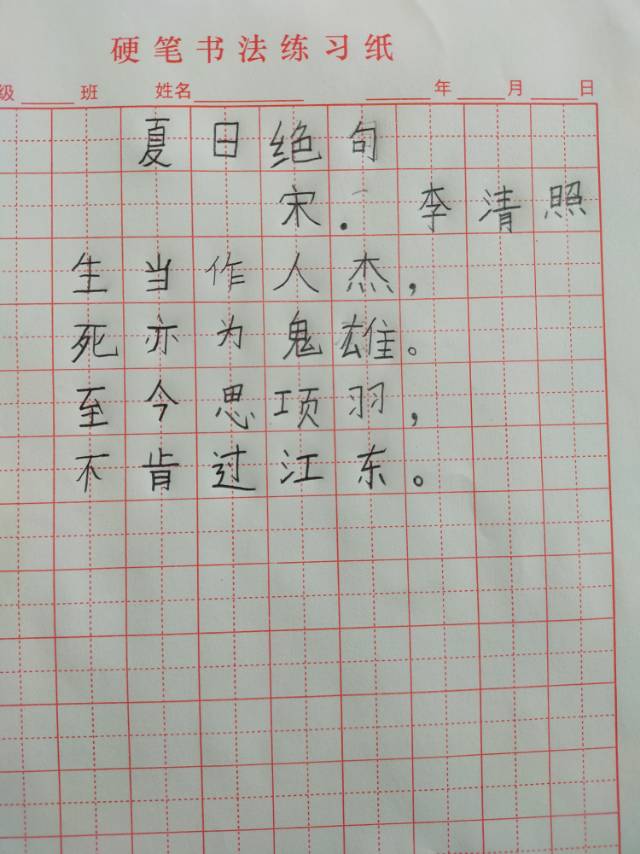 硬笔书法练习纸
级 班 姓名 年 月 日
夏日绝句
宋．李清照
生当作人杰，
死亦为鬼雄。
至今思项羽，
不肯过江东。